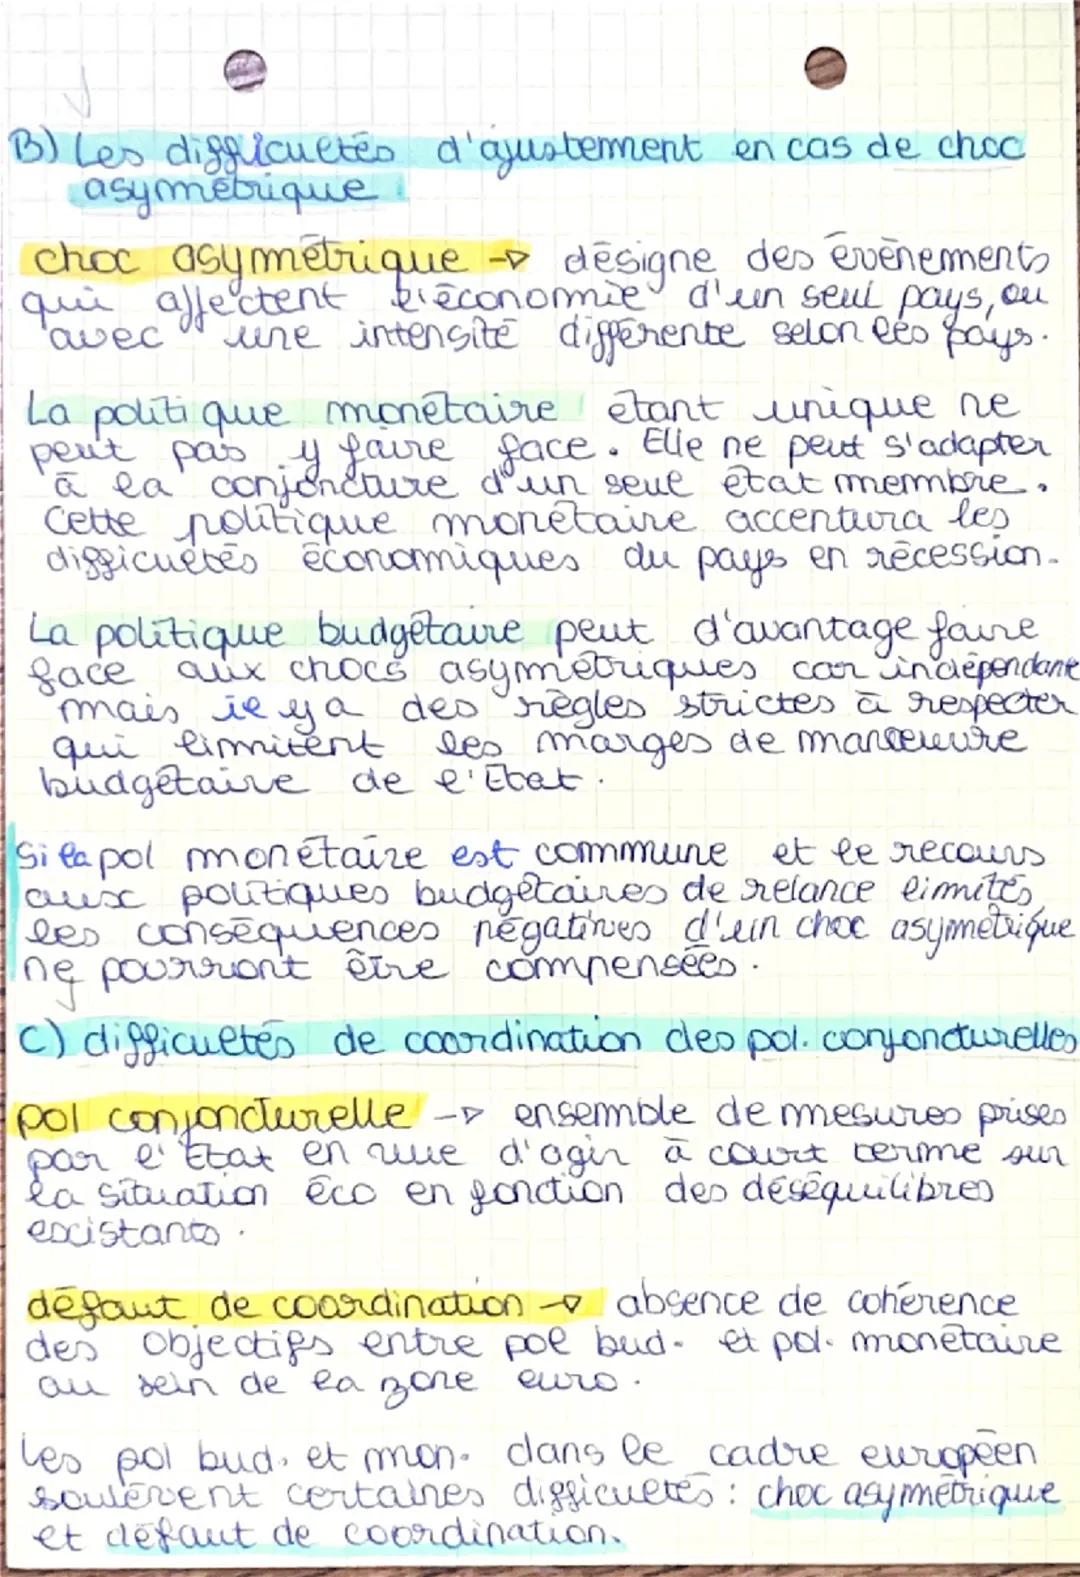 B) Les difficultés d'ajustement en cas de choc
asymétrique
choc asymétrique → désigne des évènements
qui affectent l'économie d'un seul pays, ou
avec une intensité différente selon les pays.
La politique monétaire étant unique ne
peut pas y faire face. Elle ne peut s'adapter
à la conjoncture d'un seul état membre.
Cette politique monétaire accentura les
difficultés économiques du pays en récession.
La politique budgétaire peut d'avantage faire
face aux chocs asymétriques car indépendante
mais il y a des règles strictes à respecter
qui limitent les marges de manœuvre
budgétaire de l'Etat.
Si la pol monétaire est commune et le recours
aux politiques budgétaires de relance limités,
les conséquences négatives d'un choc asymétrique
ne pourront être compensées.
C) difficultés de coordination des pol. conjoncturelles
pol conjoncturelle → ensemble de mesures prises
par l'Etat en vue d'agir à court terme sur
la situation éco en fonction des déséquilibres
existants.
défaut de coordination → absence de cohérence
des objectifs entre pol bud. et pol. monétaire
au sein de la zone euro.
Les pol bud. et mon. dans le cadre européen
soulèvent certaines difficultés : choc asymétrique
et défaut de coordination.